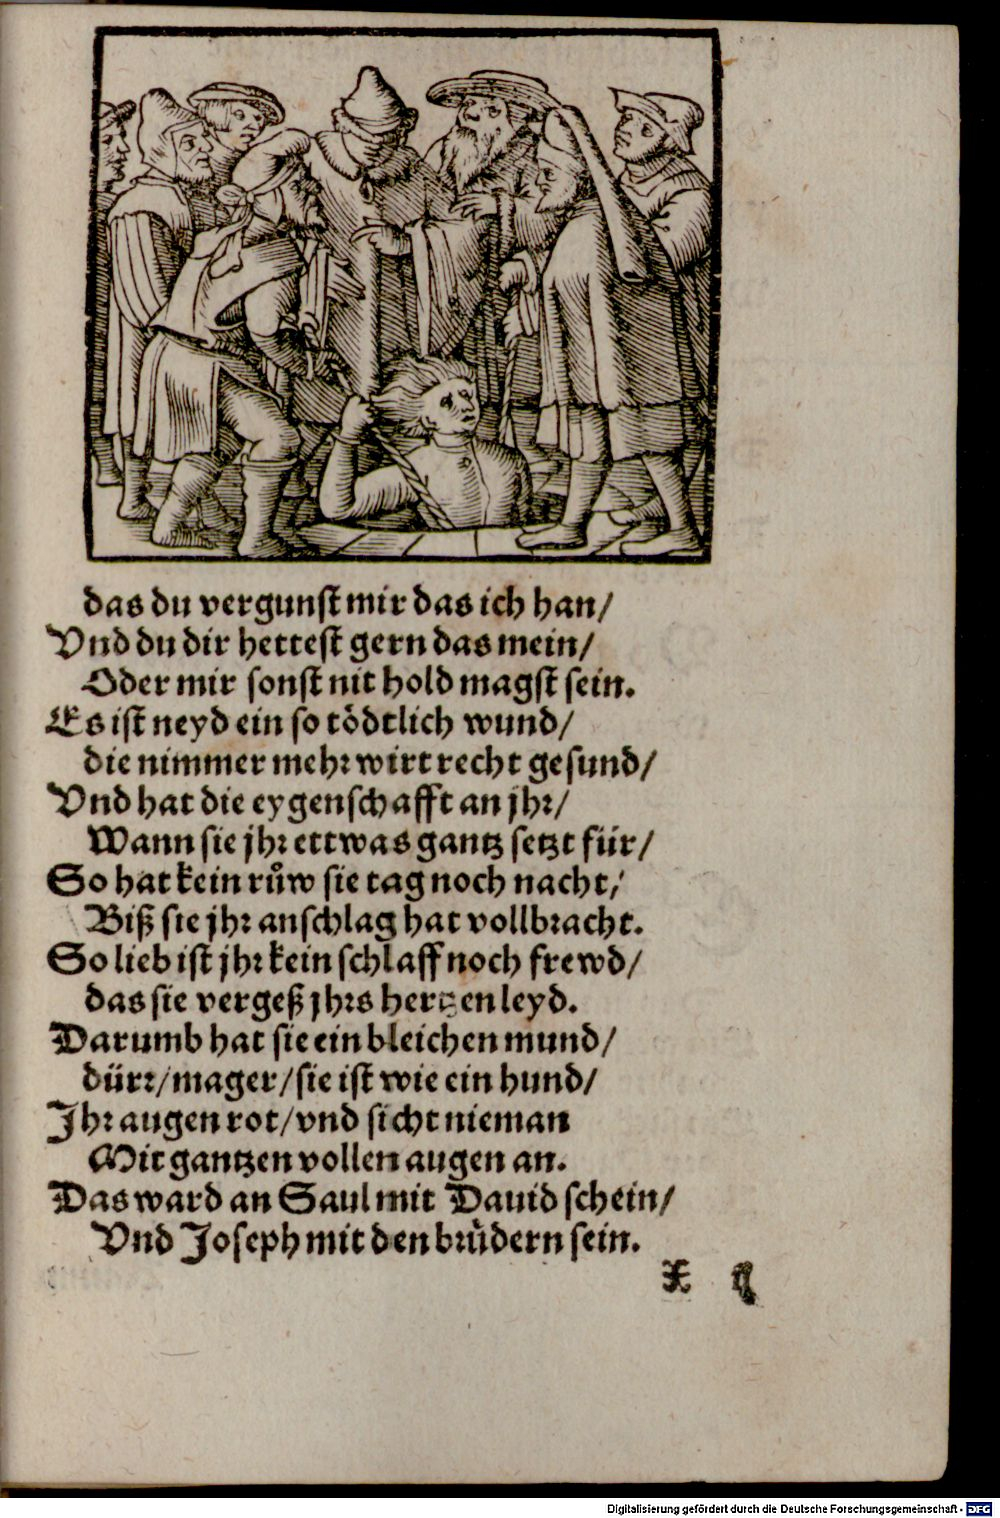 das du vergunst mir das ich han/
Vnd du dir hettest gern das mein/
Oder mir sonst nit hold magst sein.
Es ist neyd ein so tödtlich wund/
die nimmer mehr wirt recht gesund/
Vnd hat die eygenschafft an jhr/
Wann sie jhr ettwas gantz setzt für/
So hat kein růw sie tag noch nacht/
Biß sie jhr anschlag hat vollbracht.
So lieb ist jhr kein schlaff noch frewd/
das sie vergeß jhrs hertzen leyd.
Darumb hat sie ein bleichen mund/
dürr/mager/sie ist wie ein hund/
Jhr augen rot/vnd sicht nieman
Mit gantzen vollen augen an.
Das ward an Saul mit Dauid schein/
Vnd Joseph mit den brüdern sein.
x
Digitalisierung gefördert durch die Deutsche Forschungsgemeinschaft - DFG